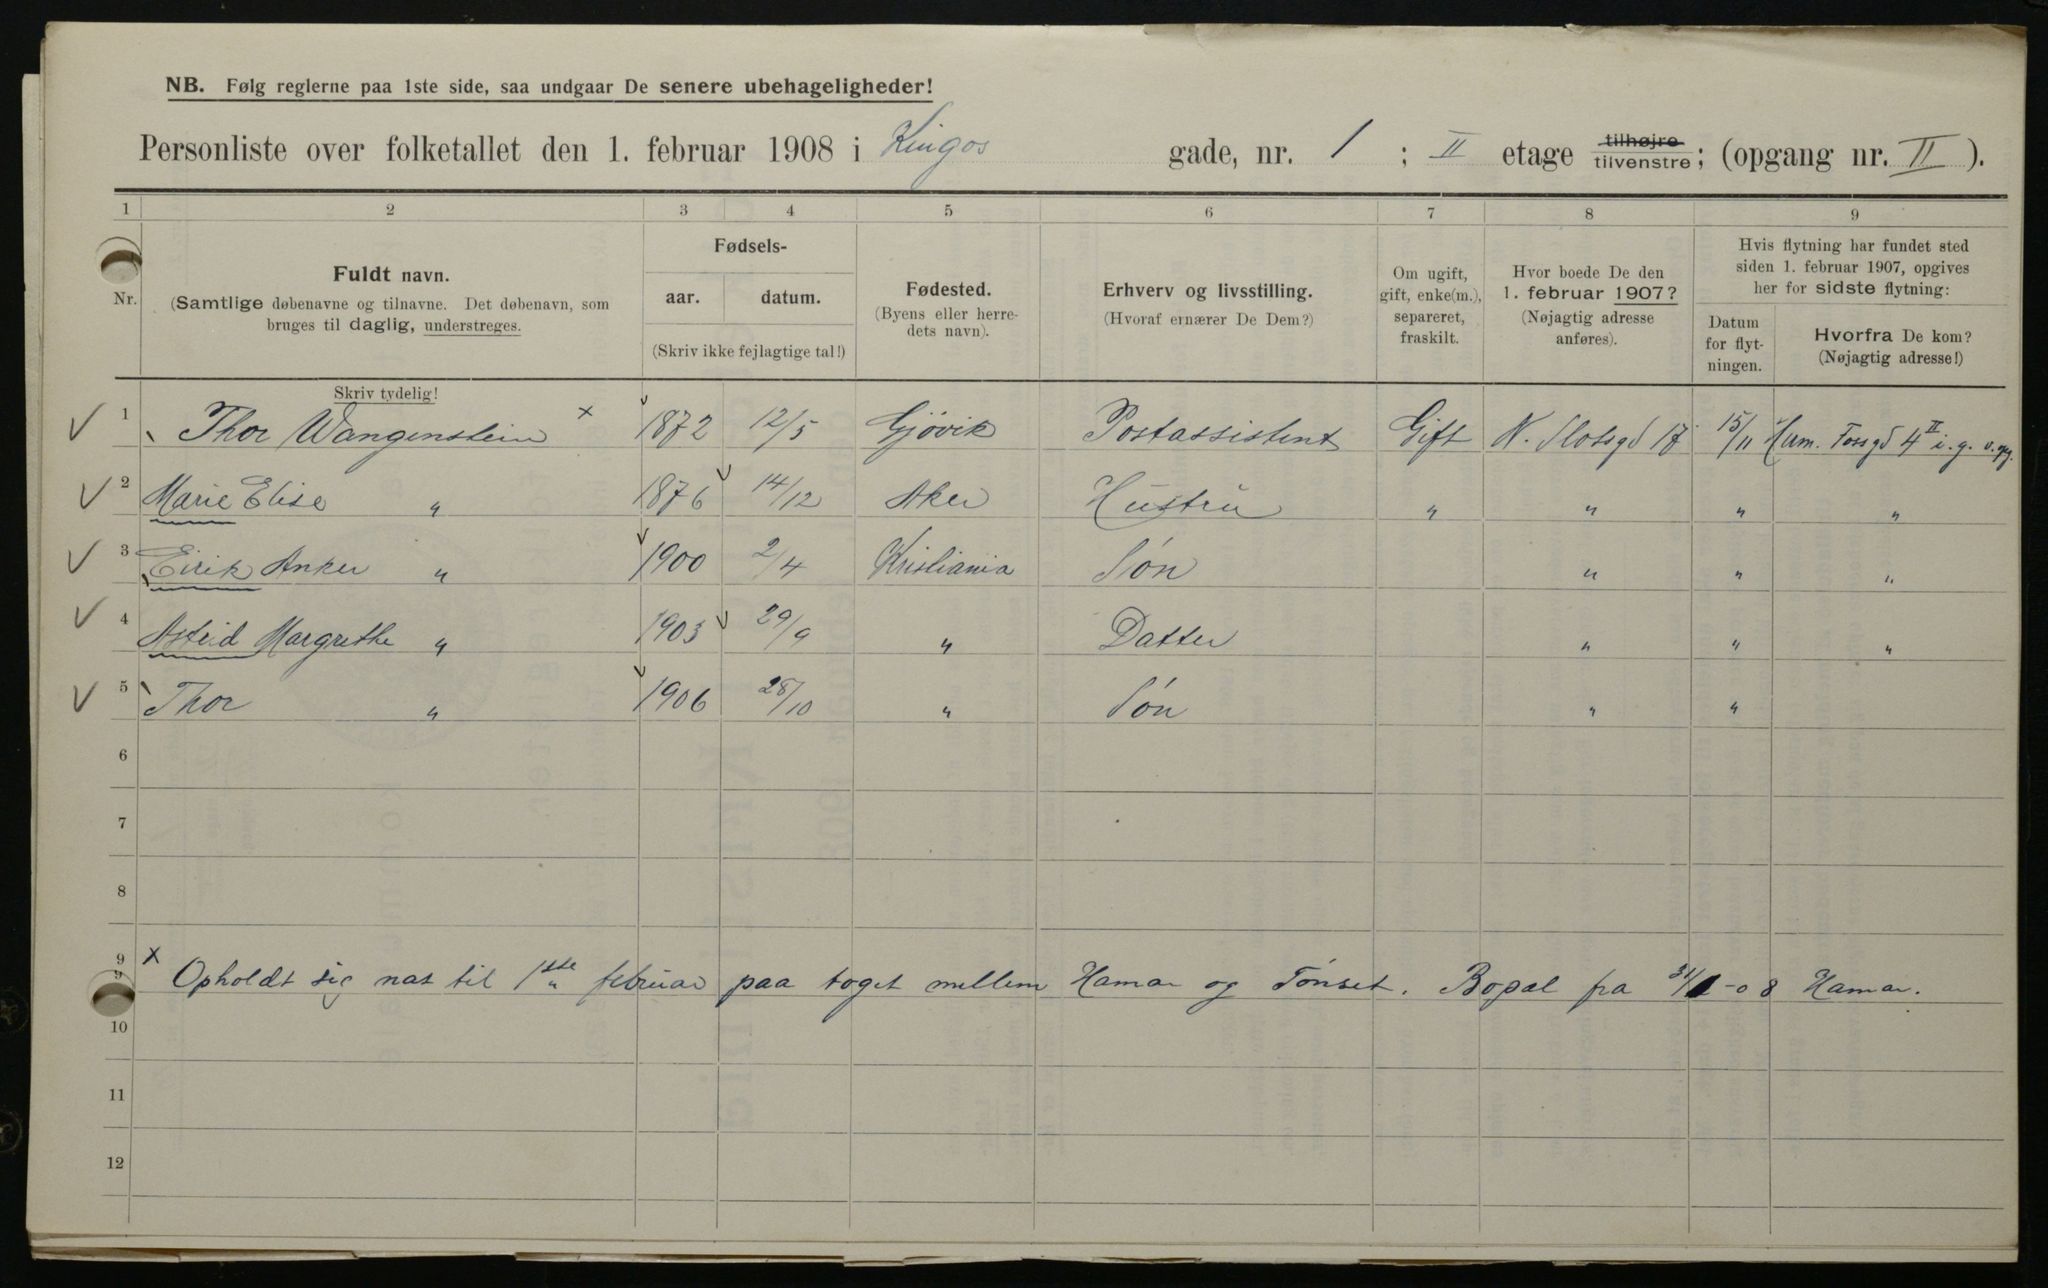 NB. Følg reglerne paa 1ste side, saa undgaar De senere ubehageligheder!
Personliste over folketallet den 1. februar 1908 i Kingos gade, nr. 1 ; II etage tilhøjre tilvenstre; (opgang nr. II ).
1 2 3 4 5 6 7 8 9
Nr.
Fuldt navn.
(Samtlige døbenavne og tilnavne. Det døbenavn, som
bruges til daglig, understreges.
Fødsels-
aar. datum.
(Skriv ikke fejlagtige tal!)
Fødested.
(Byens eller herre-
dets navn).
Erhverv og livsstilling.
(Hvoraf ernærer De Dem?)
Om ugift,
gift, enke(m.),
separeret,
fraskilt.
Hvor boede De den
1. februar 1907?
(Nøjagtig adresse
anføres).
Hvis flytning har fundet sted
siden 1. februar 1907, opgives
her for sidste flytning:
Datum
for flyt-
ningen.
Hvorfra De kom?
(Nøjagtig adresse!)
Skriv tydelig!
1 Thor Wangenstein x 1872 12/5 Gjövik Postassistent Gift N. Slotsgd 17 15/11 Ham. Fossgd 4 II i. g. o. opg.
2 Marie Elise " 1876 14/12 Aker Hustru " " " "
3 Eirik Anker " 1900 2/4 Kristiania Sön " " "
4 Astrid Margrethe " 1903 29/9 " Datter " " "
5 Thor " 1906 28/10 " Sön " "
6
7
8
9
9 x Opholdt sig nat til 1ste februar paa toget mellem Hamar og Tönset. Bopæl fra 31/1-08 Hamar.
10
11
12